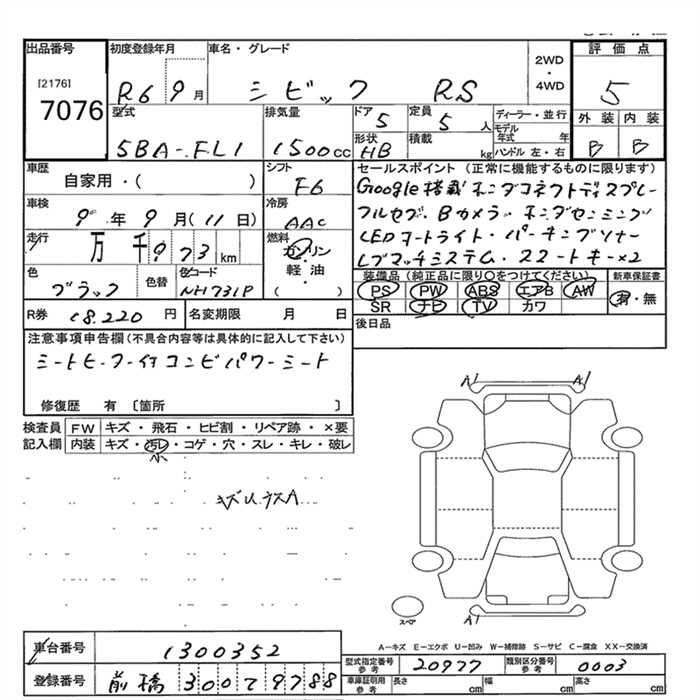 出品番号
[2176]
7076
初度登録年月
R6 9月
車名・グレード
シビック RS
2WD
・
4WD
評価点
5
外装 内装
B B
型式
5BA-FL1
排気量
1500cc
ドア
5
定員
5人
形状
HB
積載
kg
ディーラー・並行
モデル年式 年
ハンドル 左・右
車歴
自家用・( )
シフト
F6
車検
9年9月(11日)
冷房
AAC
走行
万 千 973 km
燃料
ガソリン
・
軽・油
( )
色
ブラック
色替
色コード
NH731P
R券
18,220円
名変期限 月 日
セールスポイント(正常に機能するものに限ります)
Google搭載ホンダコネクトディスプレー
フルセグ・Bカメラ・ホンダセンシング
LEDオートライト・パーキングソナー
レブマッチシステム・スマートキー×2
装備品(純正品に限り○をつけてください)
PS PW ABS エアB AW
SR ナビ TV カワ
新車保証書
有・無
後日品
注意事項申告欄(不具合内容等は具体的に記入して下さい)
シートヒーター付コンビパワーシート
修復歴 有〔箇所 〕
検査員記入欄
FW キズ・飛石・ヒビ割・リペア跡・×要
内装 キズ・汚レ・コゲ・穴・スレ・キレ・破レ
小
キズUウスA
A1 A1
A1
スペア
A−キズ E−エクボ U−凹み W−補修跡 S−サビ C−腐食 XX−交換済
車台番号
1300352
登録番号
前橋 300 て 9788
型式指定番号
参考
20977
類別区分番号
参考
0003
車庫証明用
参考
長さ cm 幅 cm 高さ cm